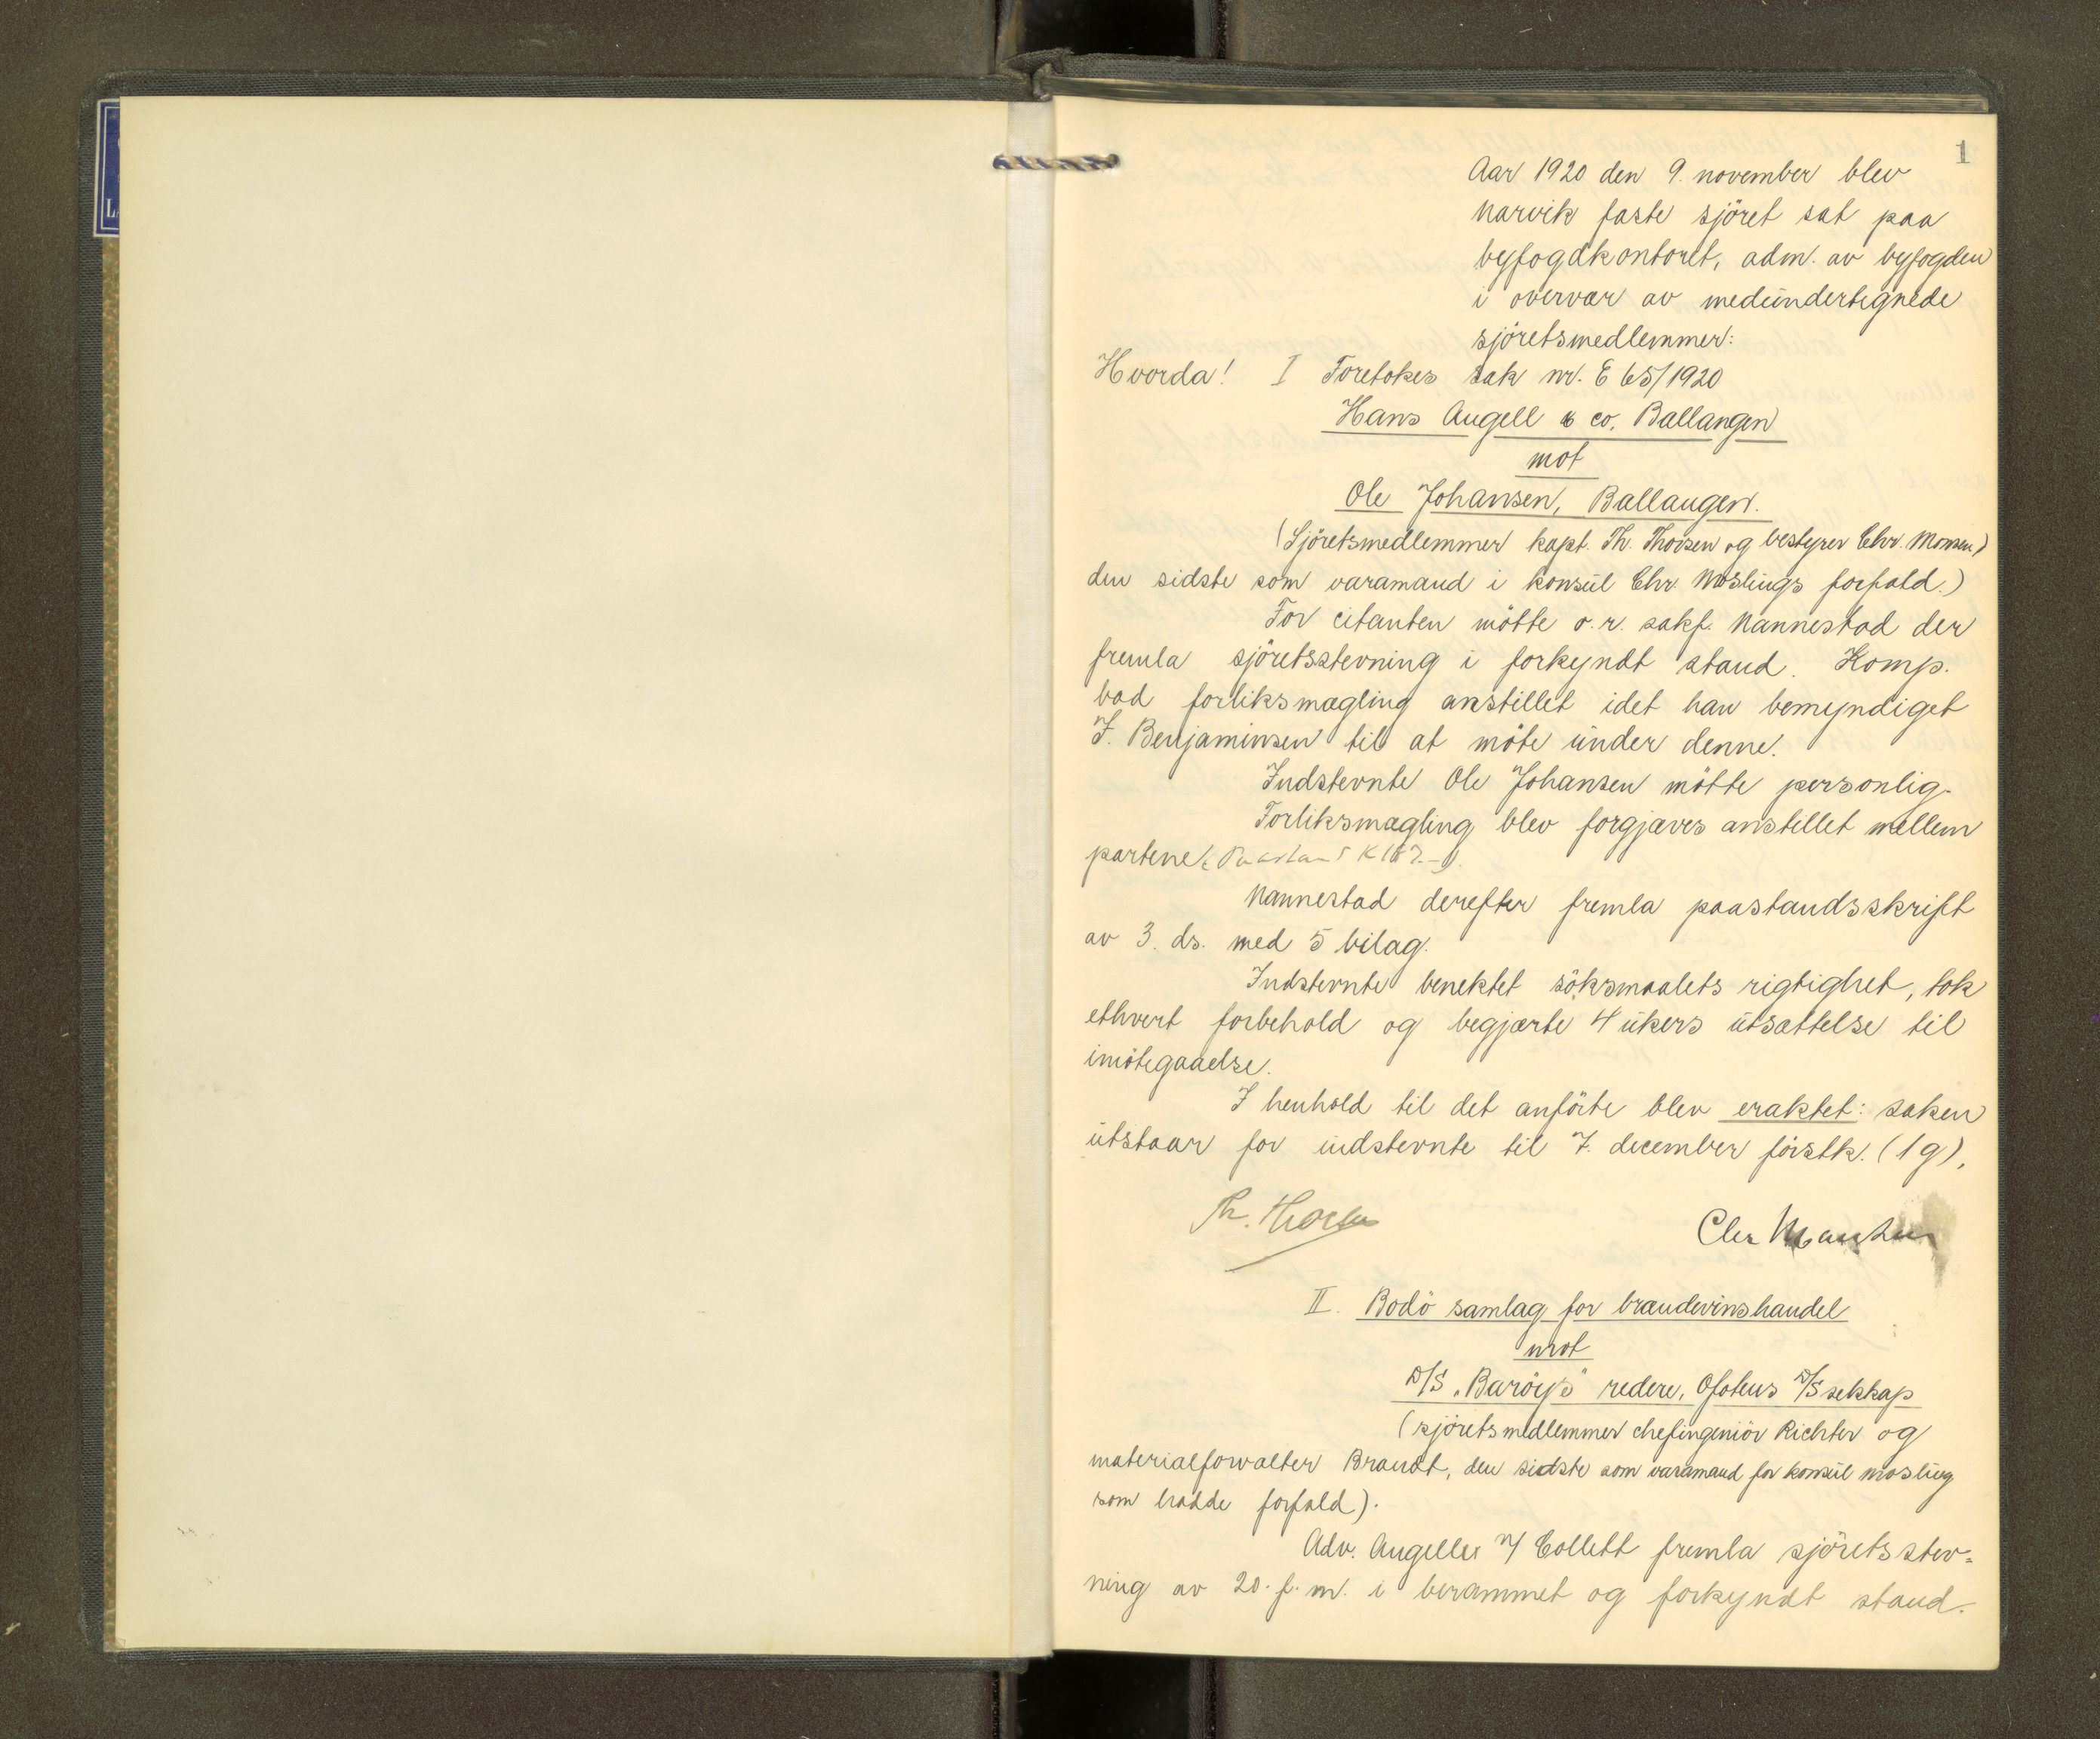 1
Aar 1920 den 9. november blev
Narvik faste sjöret sat paa
byfogdkontoret, adm. av byfogden
i overvær av medundertegnede
sjöretsmedlemmer:
Hvorda! I Foretokes sak nr. E 65/1920
Hans Angell & co. Ballangen
mot
Ole Johansen, Ballangen.
(Sjöretsmedlemmer kapt. Th. Thorsen og bestyrer Chr. Monsen,
den sidste som varamand i konsul Chr. Moslings forfald.)
For citanten mötte o.r. sakf. Nannestad der
fremla sjöretsstevning i forkyndt stand. Komp.
bad forliksmægling anstillet idet han bemyndiget
J. Benjaminsen til at möte under denne.
Indstevnte Ole Johansen mötte personlig.
Forliksmægling blev forgjæves anstillet mellem
partene (Paastand K
Nannestad derefter fremla paastandsskrift
av 3. ds. med 5 bilag.
Indstevnte benektet söksmaalets rigtighet, tok
ethvert forbehold og begjærte 4 ukers utsættelse til
imötegaaelse.
I henhold til det anförte blev eraktet: saken
utstaar for indstevnte til 7. december förstk. (1g).
Th. Thorsen
Chr Monsen
II. Bodö samlag for brændevinshandel
mot
D/S „Baröys" redere, Ofotens D/Sselskap
(sjöretsmedlemmer chefingeniör Richter og
materialforvalter Brandt, den sidste som varamand for konsul Mosling
som hadde forfald).
Adv. Angeller v/ Collett fremla sjöretsstev=
ning av 20. f. m. i berammet og forkyndt stand.